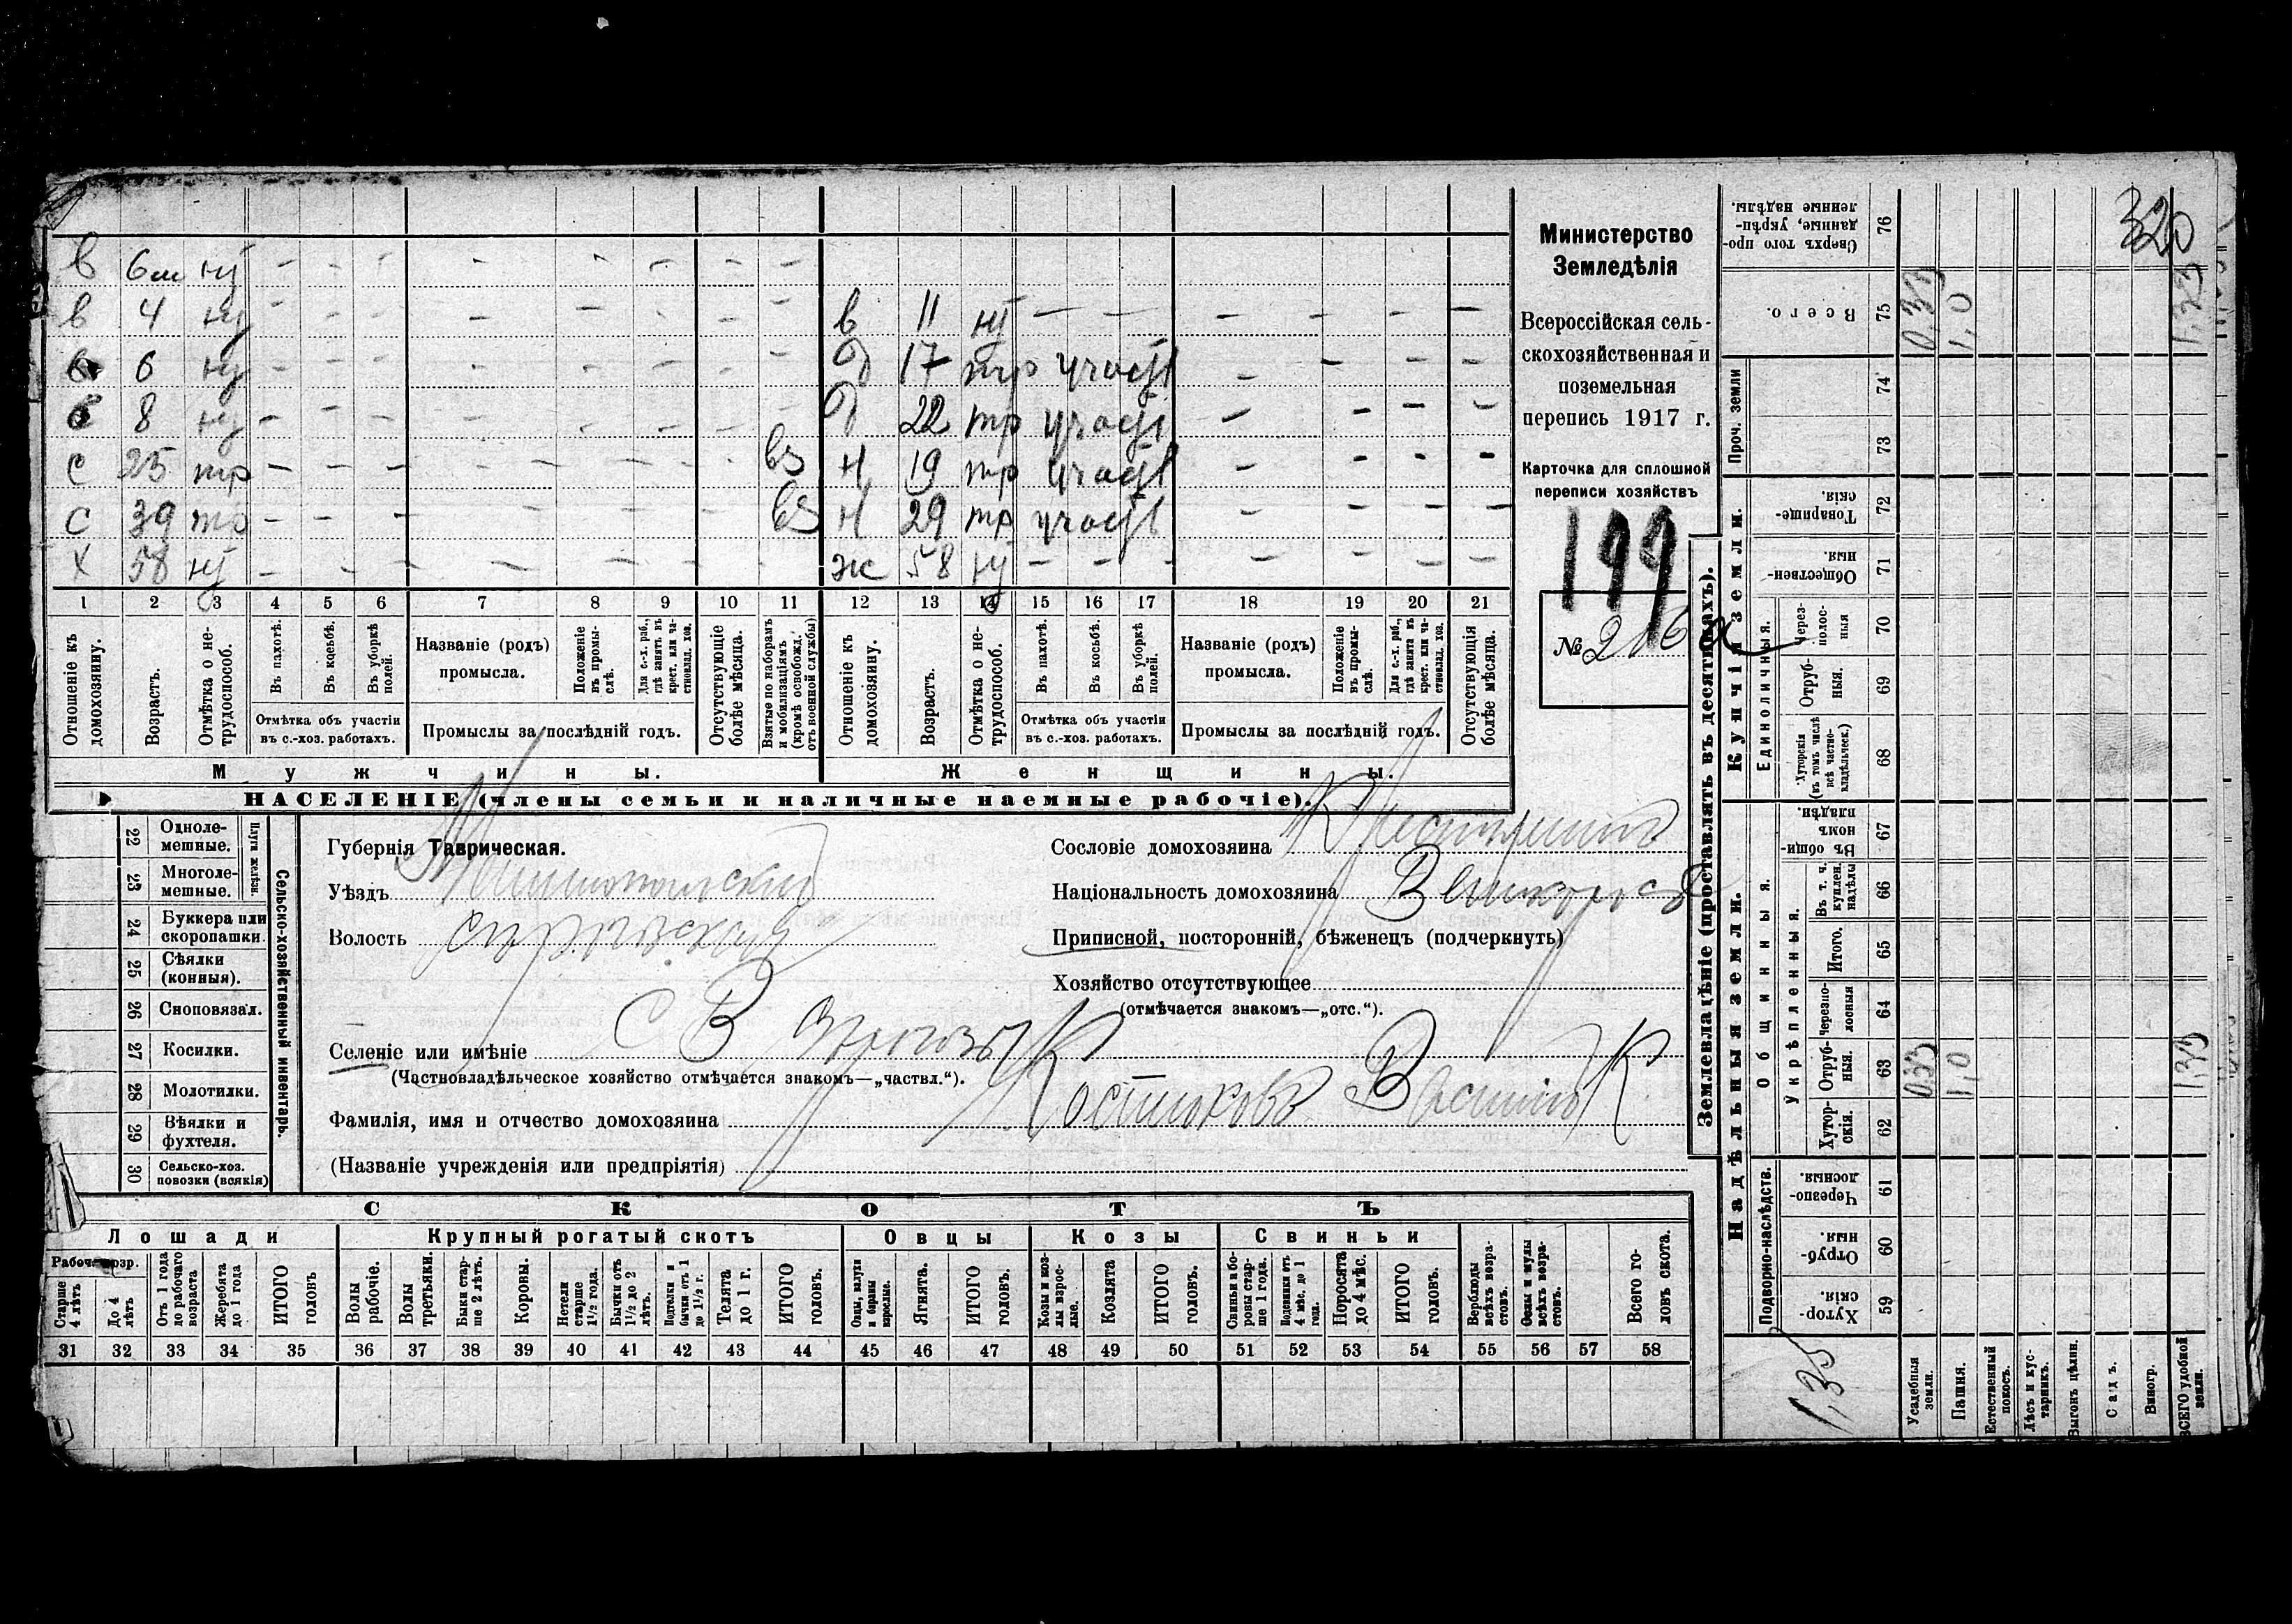 в 6м нт - - - - - - - -
в 4 нт - - - - - - - - в 11 нт - - - - - - -
в 6 нт - - - - - - - - д 17 тр участ - - - -
в 8 нт - - - - - - - - д 22 тр участ - - - -
с 25 тр - - - - - - - вз н 19 тр участ - - - -
с 39 тр - - - - - - - вз н 29 тр участ - - - -
х 58 нт - - - - - - - - ж 58 нт - - - - - - -
1 2 3 4 5 6 7 8 9 10 11 12 13 14 15 16 17 18 19 20 21
Отношеніе къ домохозяину.
Возрастъ.
Отмѣтка о нетрудоспособ.
Въ пахотѣ.
Въ косьбѣ.
Въ уборкѣ полей.
Отмѣтка объ участіи
въ с.-хоз. работахъ.
Названіе (родъ)
промысла.
Положеніе въ промыслѣ.
Для с.-х. раб., гдѣ занятъ въ крест. или частновлад. хоз.
Промыслы за послѣдній годъ.
Отсутствующіе болѣе мѣсяца.
Взятые по наборамъ и мобилизаціямъ (кромѣ освобожд. отъ военной службы)
Отношеніе къ домохозяину.
Возрастъ.
Отмѣтка о нетрудоспособ.
Въ пахотѣ.
Въ косьбѣ.
Въ уборкѣ полей.
Отмѣтка объ участіи
въ с.-хоз. работахъ.
Названіе (родъ)
промысла.
Положеніе въ промыслѣ.
Для с.-х. раб., гдѣ занята въ крест. или частновлад. хоз.
Промыслы за послѣдній годъ.
Отсутствующія болѣе мѣсяца.
Мужчины.
Женщины.
НАСЕЛЕНІЕ (члены семьи и наличные наемные рабочіе).
Министерство
Земледѣлія
Всероссійская сель-
скохозяйственная и
поземельная
перепись 1917 г.
Карточка для сплошной
переписи хозяйствъ
199
№ 216 а
22 Одноле-
мешные.
23 Многоле-
мешные.
Плуги желѣзн.
24 Буккера или
скоропашки.
25 Сѣялки
(конныя).
26 Сноповязал.
27 Косилки.
28 Молотилки.
29 Вѣялки и
фухтеля.
30 Сельско-хоз.
повозки (всякія)
Сельско-хозяйственный инвентарь.
Губернія Таврическая.
Уѣздъ Мелитопольскій
Волость
Селеніе или имѣніе с В
(Частновладѣльческое хозяйство отмѣчается знакомъ—„частвл.“).
Фамилія, имя и отчество домохозяина Костюковъ Василій К
(Названіе учрежденія или предпріятія)
Сословіе домохозяина Крестьянинъ
Національность домохозяина Великоросъ
Приписной, посторонній, бѣженецъ (подчеркнуть)
Хозяйство отсутствующее
(отмѣчается знакомъ—„отс.“).
СКОТЪ
Лошади
Крупный рогатый скотъ
Овцы
Козы
Свиньи
Рабоч. возр.
Старше 4 лѣтъ
До 4 лѣтъ
Отъ 1 года до рабочаго возраста
Жеребята до 1 года
ИТОГО головъ
Волы рабочіе.
Волы третьяки.
Быки старше 2 лѣтъ.
Коровы.
Нетели старше 1½ года.
Бычки отъ 1½ до 2 лѣтъ.
бычки отъ 1 до 1½ г.
Телята до 1 г.
ИТОГО головъ.
Овцы, валухи и бараны взрослые.
Ягнята.
ИТОГО головъ.
Козы и козлы взрослые.
Козлята
ИТОГО головъ.
Свиньи и боровы старше 1 года.
Подсвинки отъ 4 мѣс. до 1 года.
Поросята до 4 мѣс.
ИТОГО головъ.
Верблюды всѣхъ возрастовъ.
Ослы и мулы всѣхъ возрастовъ.
Всего головъ скота.
31 32 33 34 35 36 37 38 39 40 41 42 43 44 45 46 47 48 49 50 51 52 53 54 55 56 57 58
Землевладѣніе (проставлять въ десятинахъ).
Надѣльныя земли.
Купчія земли.
Проч. земли
Подворно-наслѣдств.
Общинныя.
Укрѣпленныя.
Единоличныя.
Сверхъ того проданные, укрѣпленные надѣлы. 76
Всего. 75 0,33 1,0 1,33
74
73
Товарищескія. 72
Общественныя. 71
Черезполосныя 70
Отрубныя. 69
Хуторскія (въ томъ числѣ всѣ частновладѣльческ.) 68
Въ общинномъ владѣн. 67
Въ т. ч. куплен. надѣлы 66
Итого. 65
Черезполосныя 64
Отрубныя. 63 0,33 1,0 1,33
Хуторскія. 62
Черезполосныя. 61
Отрубныя. 60
Хуторскія. 59
Усадебныя земли.
Пашня.
Естественный покосъ.
Лѣсъ и кустарникъ.
Выгонъ цѣлин.
Садъ.
Виногр.
ВСЕГО удобной земли.
320